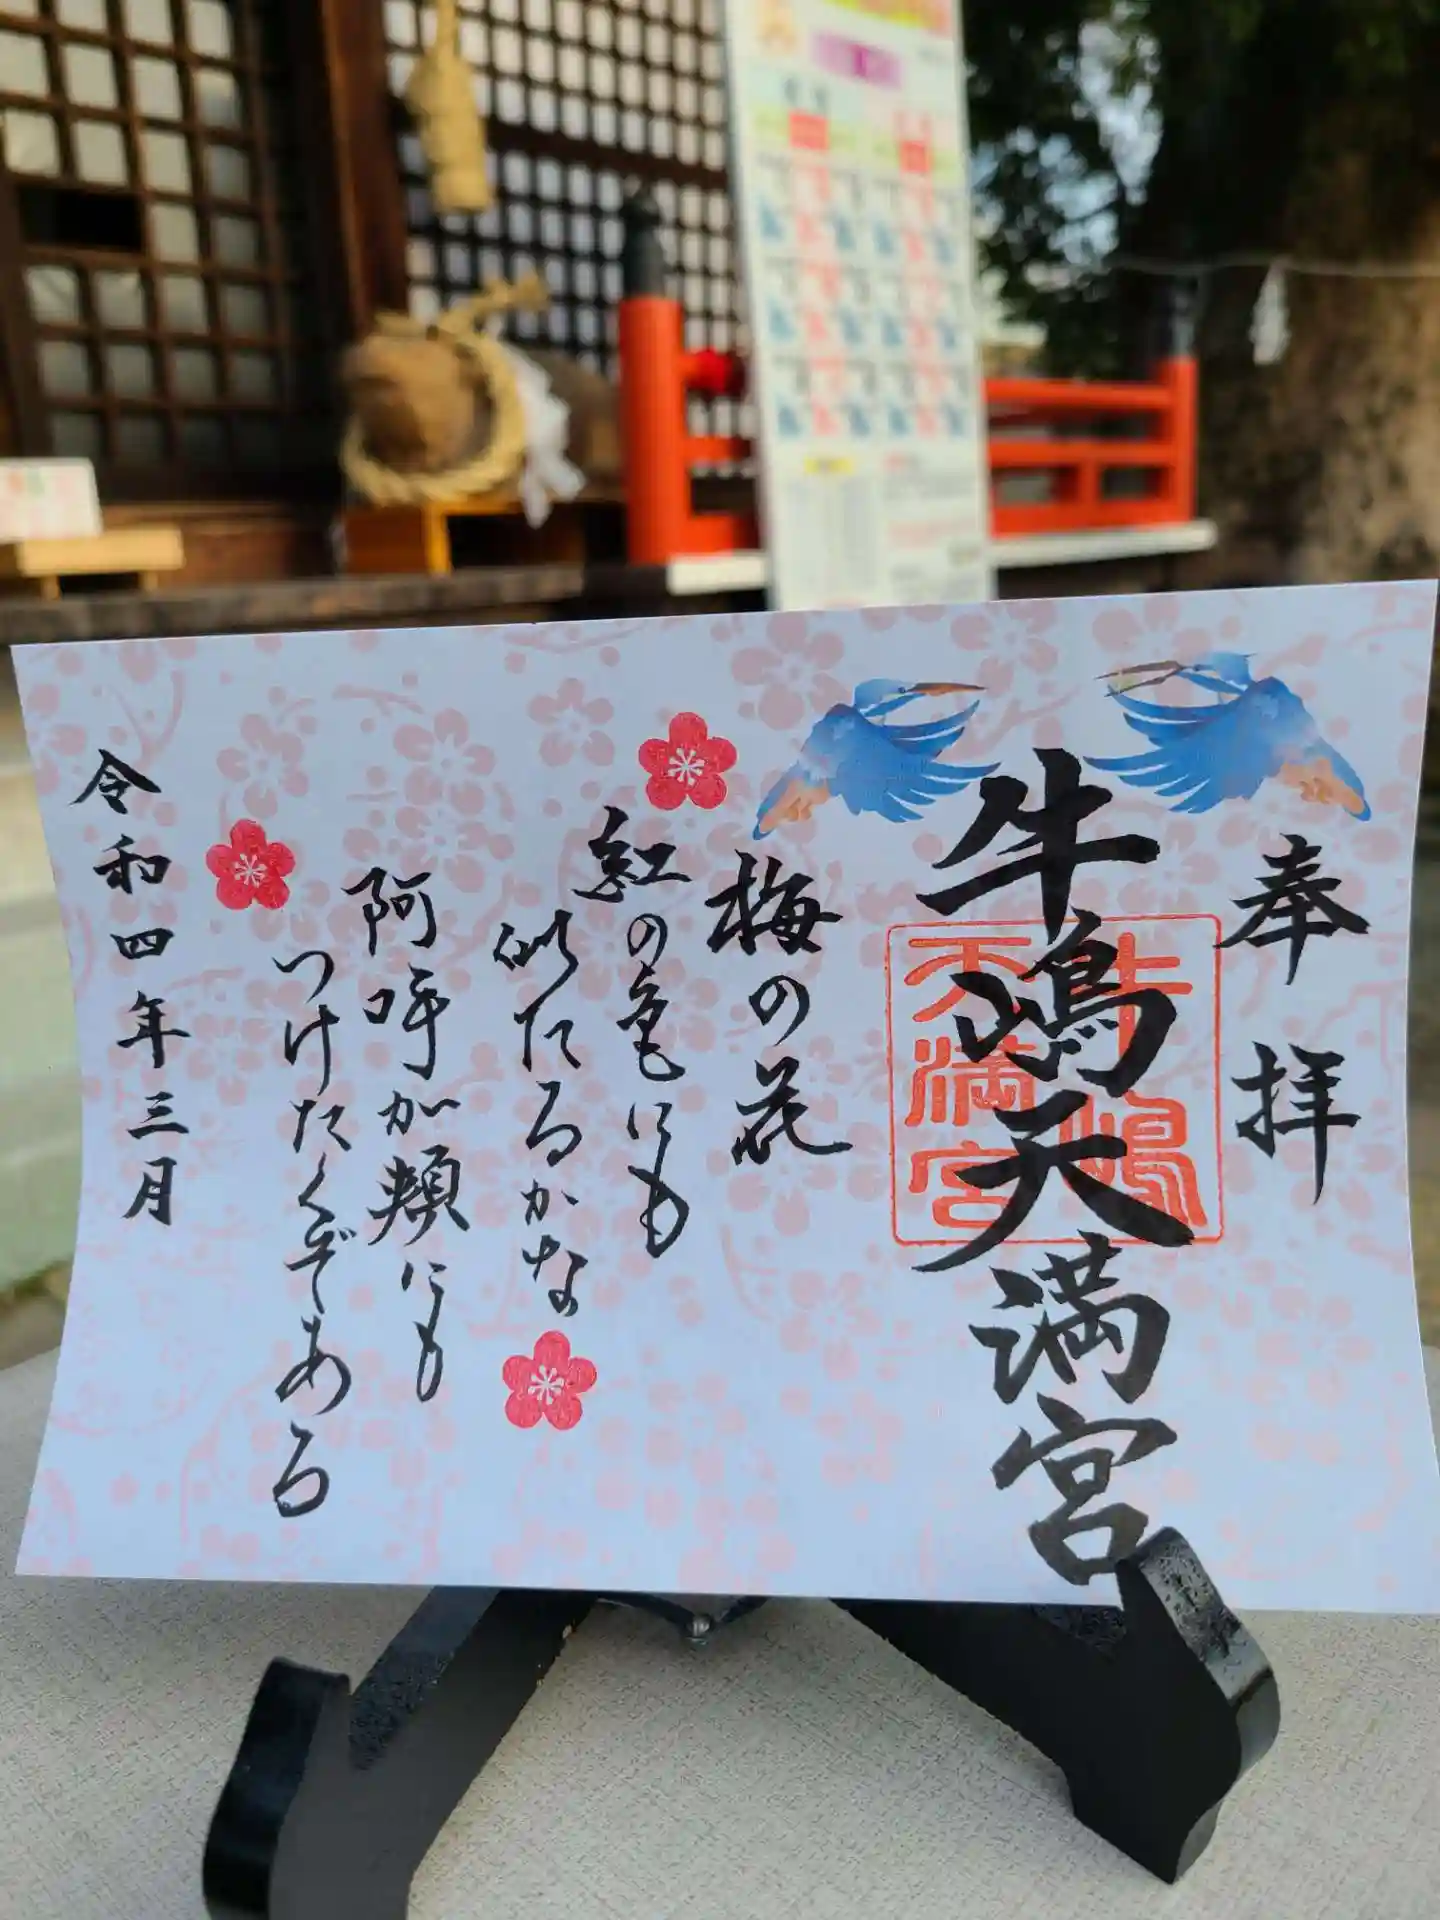 奉拝
牛嶋天満宮
牛嶋
天満宮
梅の花
紅の色にも
似たるかな
阿呼が頬にも
つけたくぞある
令和四年三月